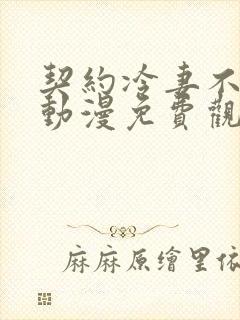 契約冷妻不
動漫免費觀
麻麻原繪里依